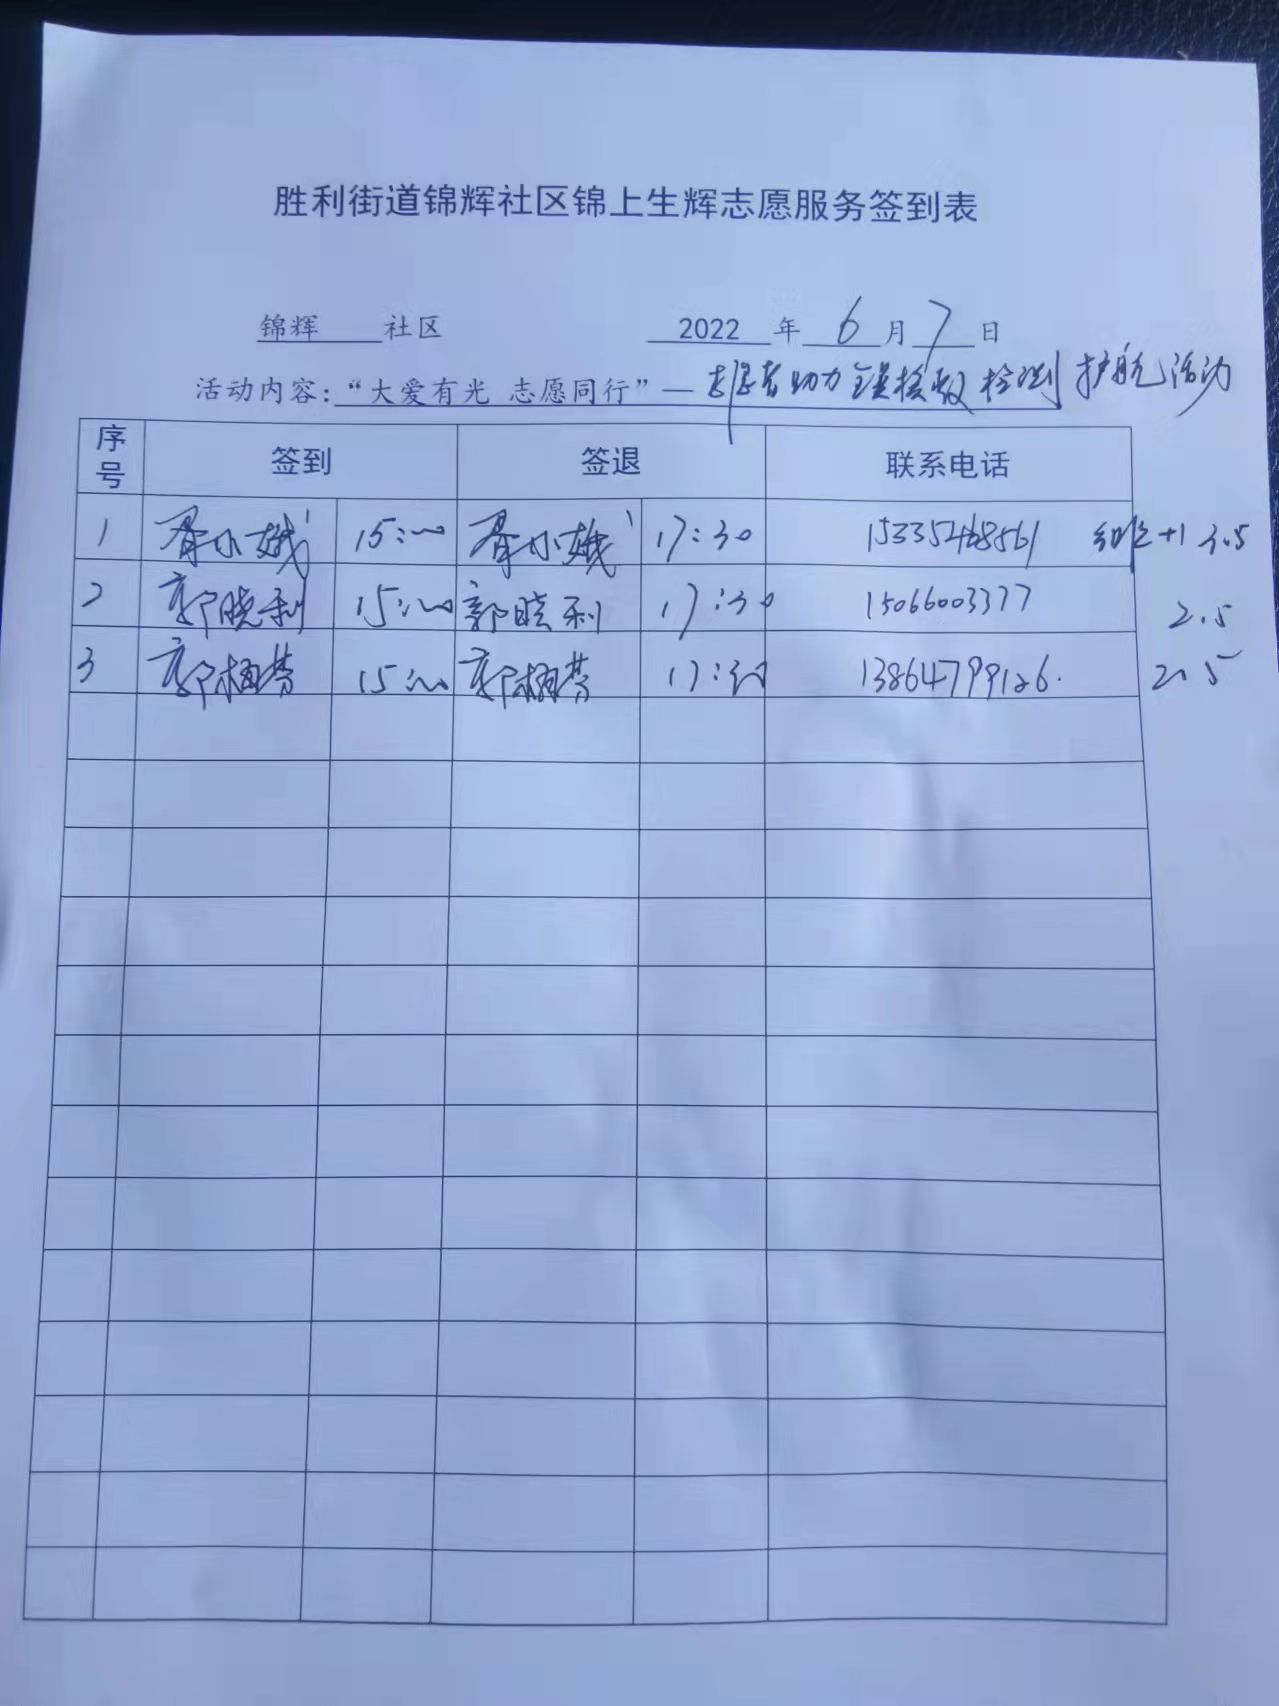 胜利街道锦辉社区锦上生辉志愿服务签到表
锦辉 社区 2022 年 6 月 7 日
活动内容：“大爱有光 志愿同行”— 志愿者助力全员核酸检测护航活动
序号 签到 签退 联系电话
1 胥小娥 15:00 胥小娥 17:30 15335468561 +1 3.5
2 郭晓利 15:00 郭晓利 17:30 15066003377 2.5
3 15:00 17:30 13864799126. 2.5